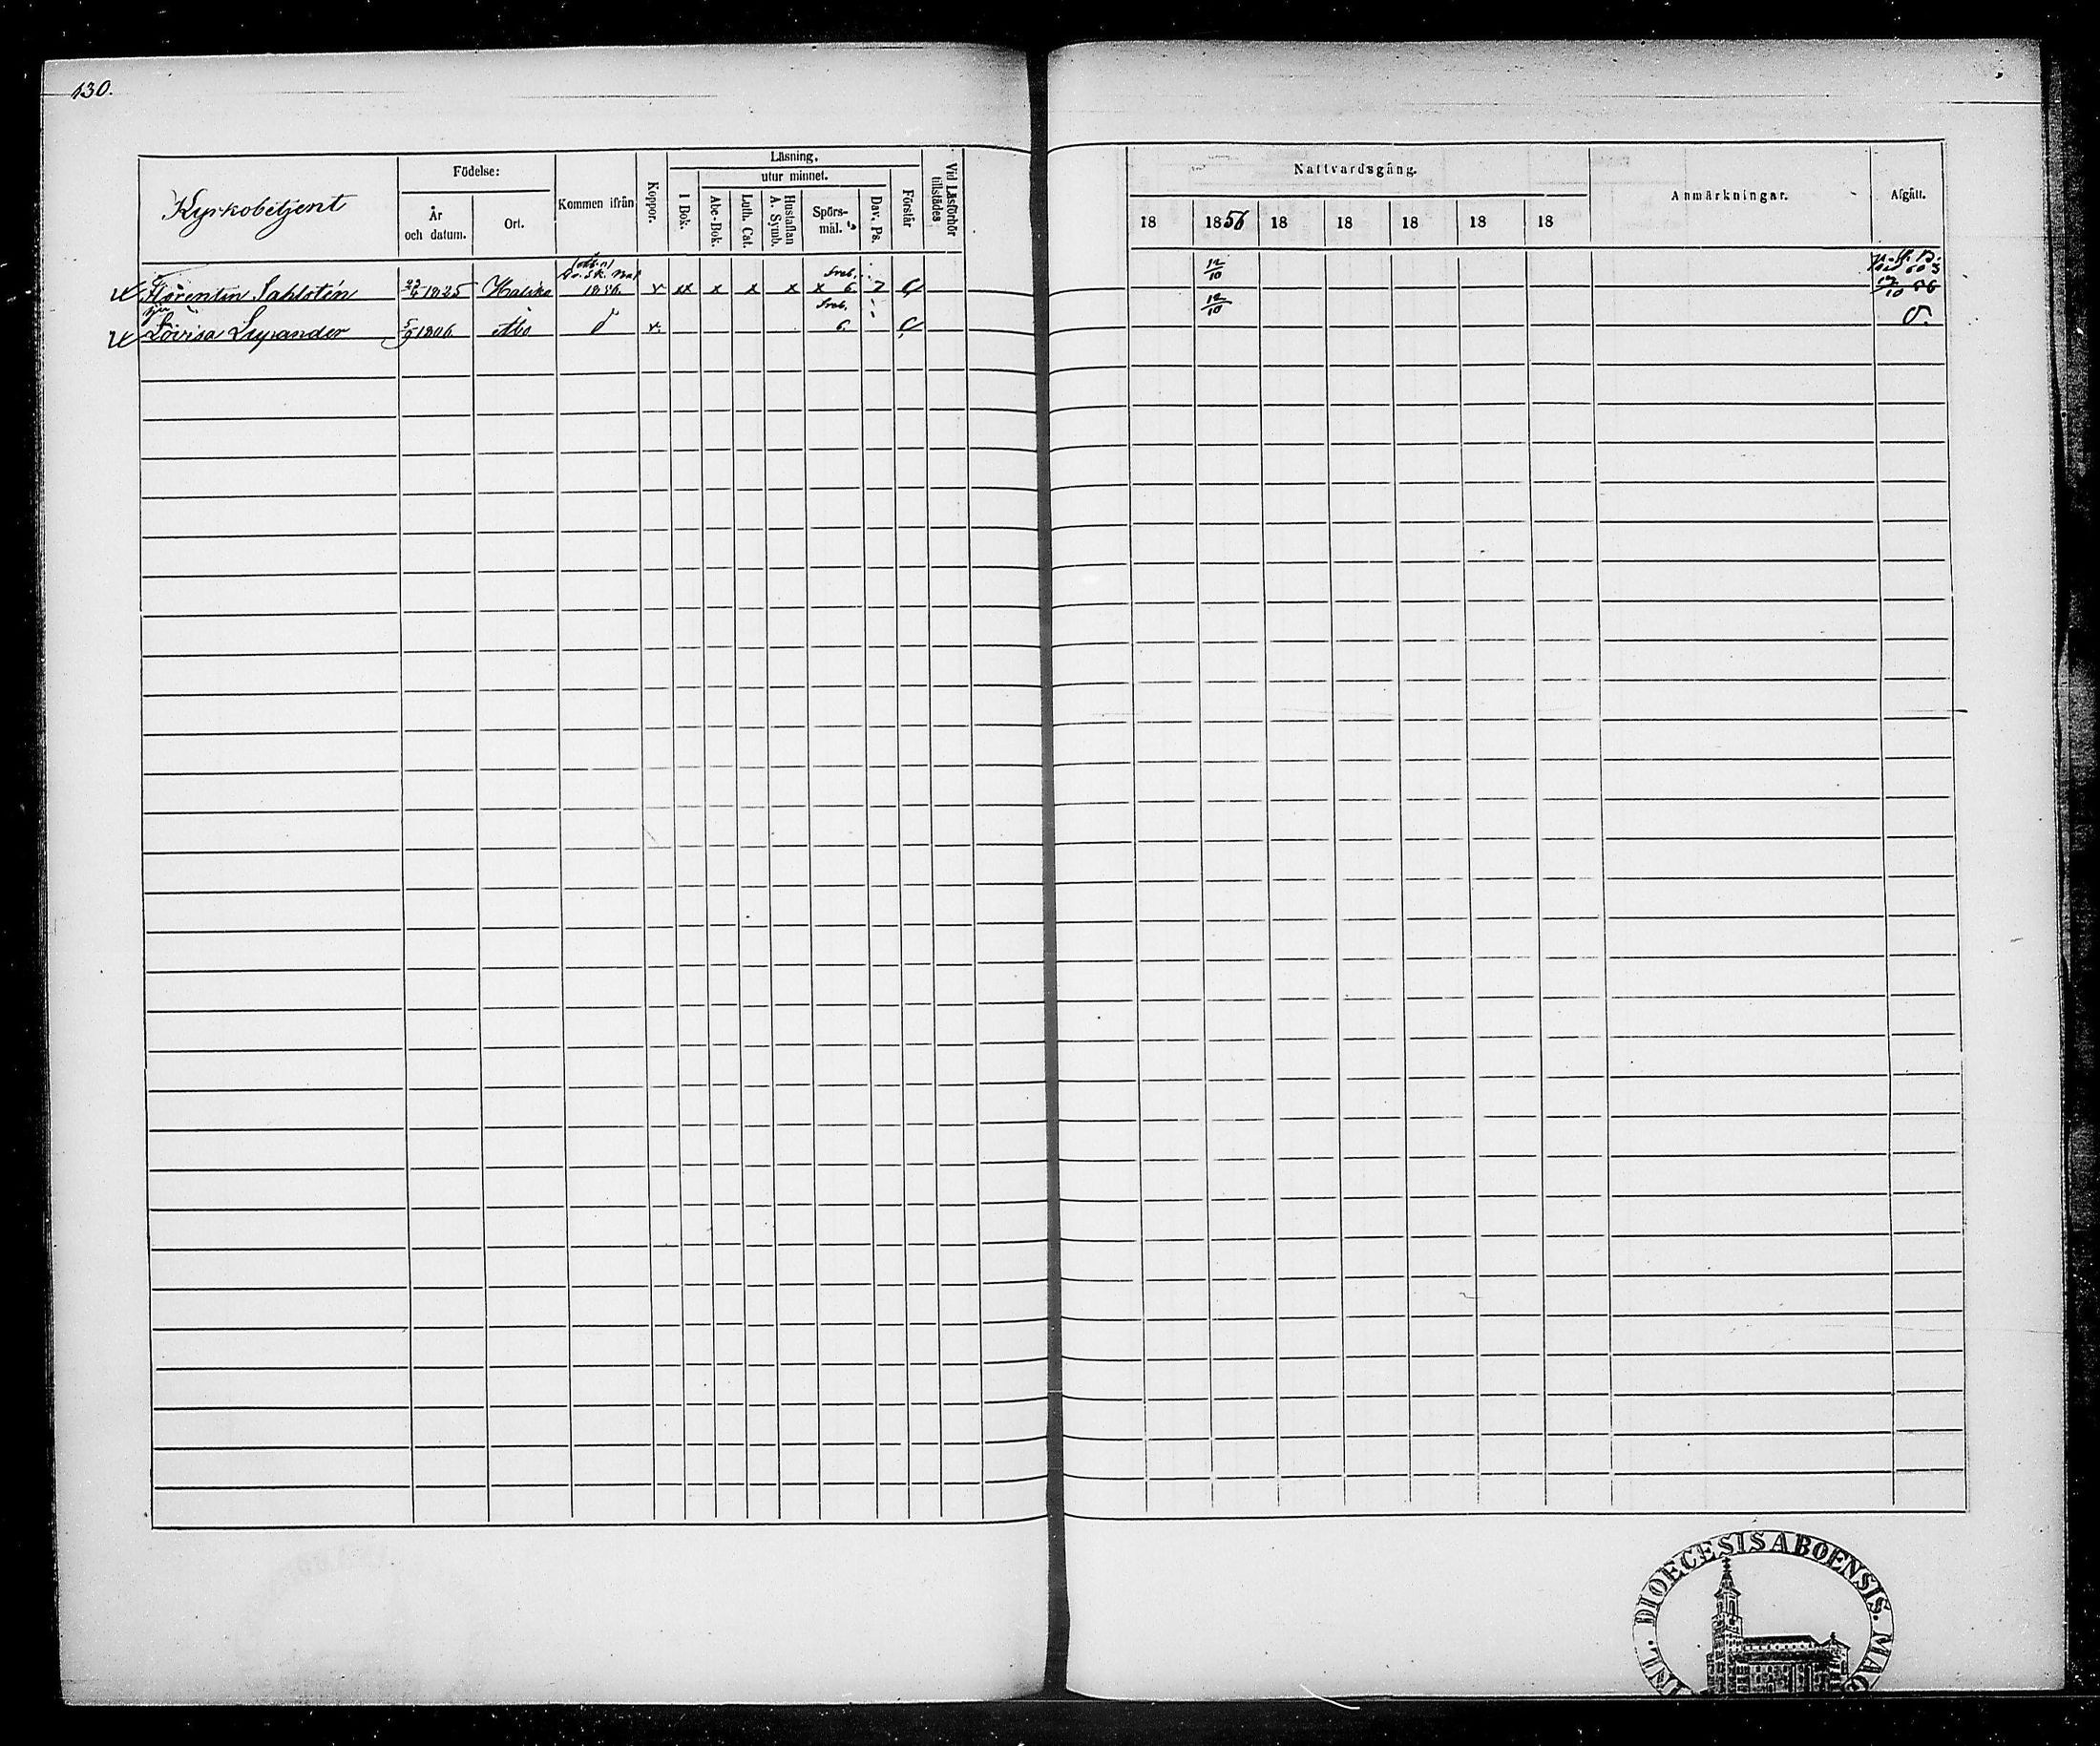 130.
Kyrkobetjent
Födelse:
År
och datum.
Ort.
Kommen ifrån
Koppor.
Läsning.
utur minnet.
I Bok.
Abc-Bok.
Luth. Cat.
Hustaflan
A. Symb.
Spörs-
mål.
Dav. Ps.
Förstår
Vid Läsförhör
tillstädes
Nattvardsgång.
18 1856 18 18 18 18 18
Anmärkningar.
Afgått.
Florentin Sahlstén 1825 Halikko 1856. x xx x x x x 6 12/10 12/10 56
Lovisa 5/9 1806 Åbo d x 6. 12/10 d.
DIOECESIS ABOENSIS. MAG